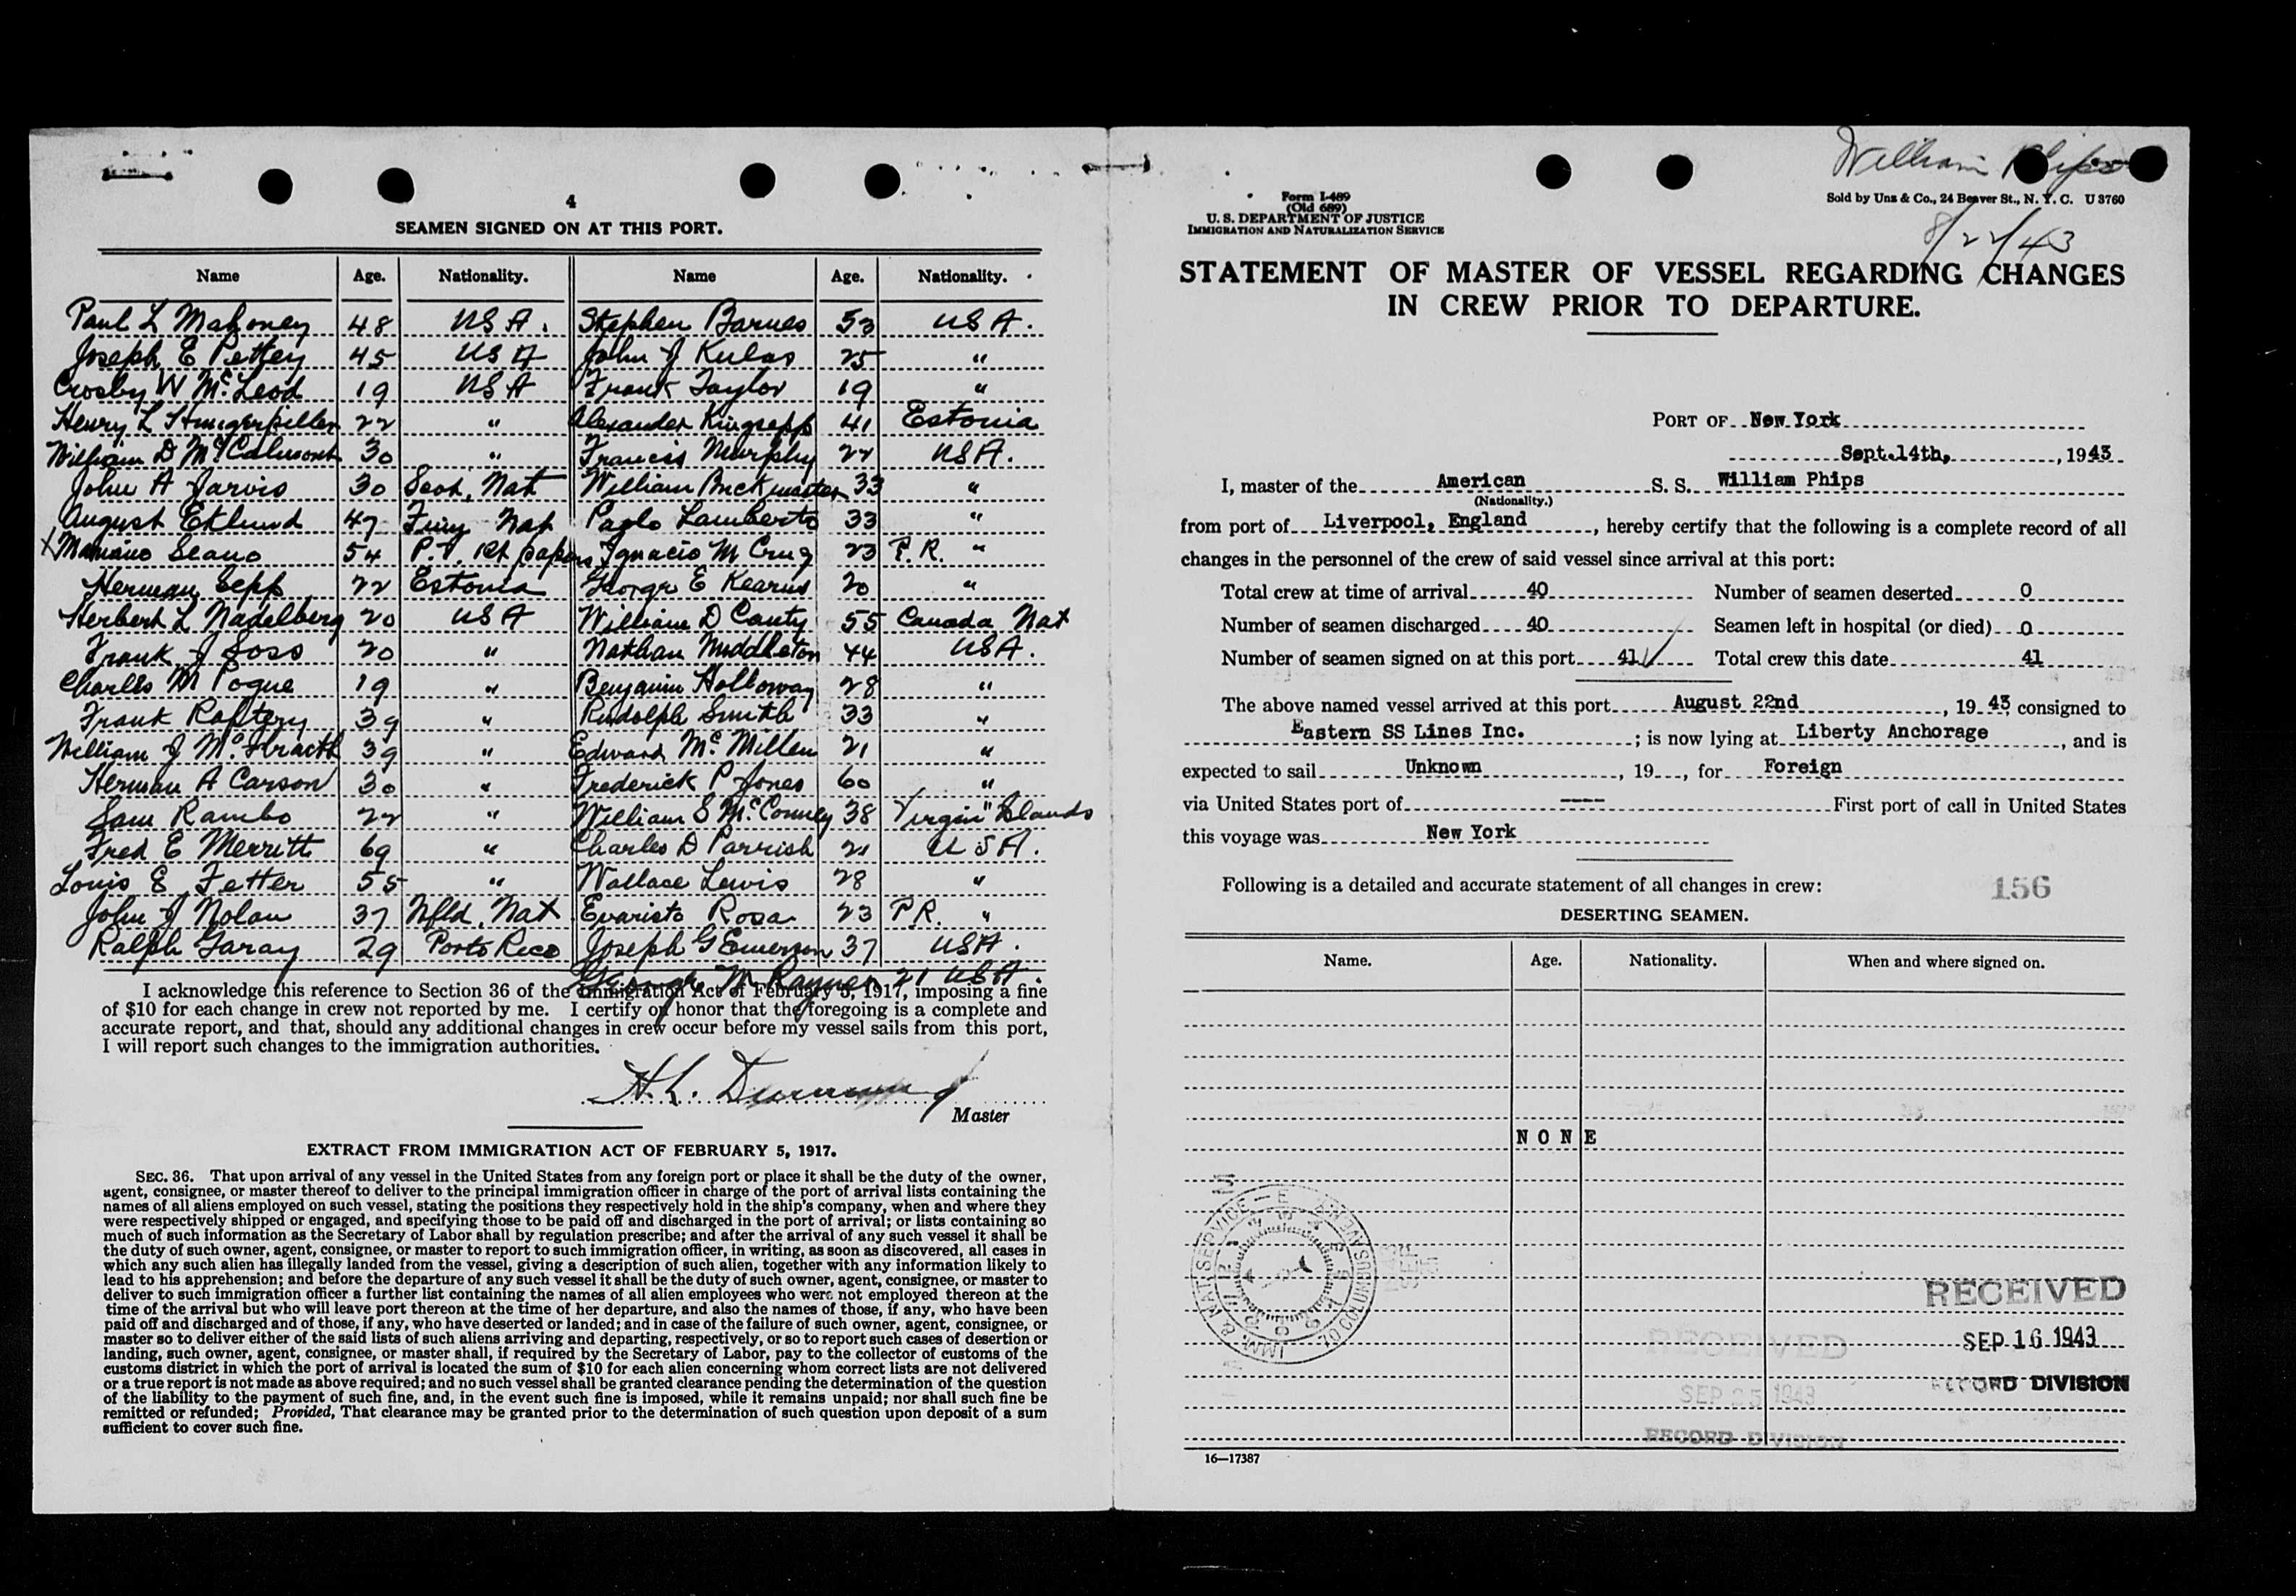 4
SEAMEN SIGNED ON AT THIS PORT.
Name Age. Nationality. Name Age. Nationality.
Paul L Mahoney 48 USA. Stephen Barnes 53 USA.
Joseph E Pettey 45 USA John J Kulas 25 "
Crosby W McLeod 19 USA Frank Taylor 19 "
Henry L Hungerpiller 22 " Alexander Kingsepp 41 Estonia
William D McCalmont 30 " Francis Murphy 22 USA.
John A Jarvis 30 Scot. Nat William Buckmaster 33 "
August Eklund 47 Finn Nat Paolo Lamberto 33 "
X Mariano Seano 54 P.I. 1st papers Ignacio M Cruz 23 P.R. "
Herman Sepp 22 Estonia George E Kearns 20 "
Herbert L Nadelberg 20 USA William D Canty 55 Canada Nat
Frank J Soss 20 " Nathan Middleton 44 USA.
Charles M Pogue 19 " Benjamin Holloway 28 "
Frank Raftery 39 " Rudolph Smith 33 "
William J McGrath 39 " Edward McMillen 21 "
Herman A Carson 30 " Frederick P Jones 60 "
Sam Rambo 22 " William S McConney 38 Virgin Islands
Fred E Merritt 69 " Charles D Parrish 21 USA.
Louis E Fetter 55 " Wallace Lewis 28 "
John J Nolan 37 Nfld. Nat Evaristo Rosa 23 P.R. "
Ralph Garay 29 Porto Rico Joseph G Emerson 37 USA.
George M Raynen 21 USA.
I acknowledge this reference to Section 36 of the Immigration Act of February 5, 1917, imposing a fine
of $10 for each change in crew not reported by me. I certify on honor that the foregoing is a complete and
accurate report, and that, should any additional changes in crew occur before my vessel sails from this port,
I will report such changes to the immigration authorities.
H. L.
Master
EXTRACT FROM IMMIGRATION ACT OF FEBRUARY 5, 1917.
SEC. 36. That upon arrival of any vessel in the United States from any foreign port or place it shall be the duty of the owner,
agent, consignee, or master thereof to deliver to the principal immigration officer in charge of the port of arrival lists containing the
names of all aliens employed on such vessel, stating the positions they respectively hold in the ship's company, when and where they
were respectively shipped or engaged, and specifying those to be paid off and discharged in the port of arrival; or lists containing so
much of such information as the Secretary of Labor shall by regulation prescribe; and after the arrival of any such vessel it shall be
the duty of such owner, agent, consignee, or master to report to such immigration officer, in writing, as soon as discovered, all cases in
which any such alien has illegally landed from the vessel, giving a description of such alien, together with any information likely to
lead to his apprehension; and before the departure of any such vessel it shall be the duty of such owner, agent, consignee, or master to
deliver to such immigration officer a further list containing the names of all alien employees who were not employed thereon at the
time of the arrival but who will leave port thereon at the time of her departure, and also the names of those, if any, who have been
paid off and discharged and of those, if any, who have deserted or landed; and in case of the failure of such owner, agent, consignee, or
master so to deliver either of the said lists of such aliens arriving and departing, respectively, or so to report such cases of desertion or
landing, such owner, agent, consignee, or master shall, if required by the Secretary of Labor, pay to the collector of customs of the
customs district in which the port of arrival is located the sum of $10 for each alien concerning whom correct lists are not delivered
or a true report is not made as above required; and no such vessel shall be granted clearance pending the determination of the question
of the liability to the payment of such fine, and, in the event such fine is imposed, while it remains unpaid; nor shall such fine be
remitted or refunded; Provided, That clearance may be granted prior to the determination of such question upon deposit of a sum
sufficient to cover such fine.
William Phips
Form I-489
(Old 689)
U. S. DEPARTMENT OF JUSTICE
IMMIGRATION AND NATURALIZATION SERVICE
Sold by Unz & Co., 24 Beaver St., N. Y. C. U 3760
8/22/43
STATEMENT OF MASTER OF VESSEL REGARDING CHANGES
IN CREW PRIOR TO DEPARTURE.
PORT OF New York
Sept.14th, , 1943
I, master of the American S. S. William Phips
(Nationality.)
from port of Liverpool, England, hereby certify that the following is a complete record of all
changes in the personnel of the crew of said vessel since arrival at this port:
Total crew at time of arrival 40 Number of seamen deserted 0
Number of seamen discharged 40 Seamen left in hospital (or died) 0
Number of seamen signed on at this port 41 Total crew this date 41
The above named vessel arrived at this port August 22nd, 1943, consigned to
Eastern SS Lines Inc.; is now lying at Liberty Anchorage, and is
expected to sail Unknown, 19, for Foreign
via United States port of ---- First port of call in United States
this voyage was New York
Following is a detailed and accurate statement of all changes in crew:
156
DESERTING SEAMEN.
Name. Age. Nationality. When and where signed on.
NONE
IMM. & NAT. SERVICE
COLUMBUS AVE
RECEIVED
SEP 16 1943
RECORD DIVISION
RECEIVED
SEP 25 1943
RECORD DIVISION
16—17387